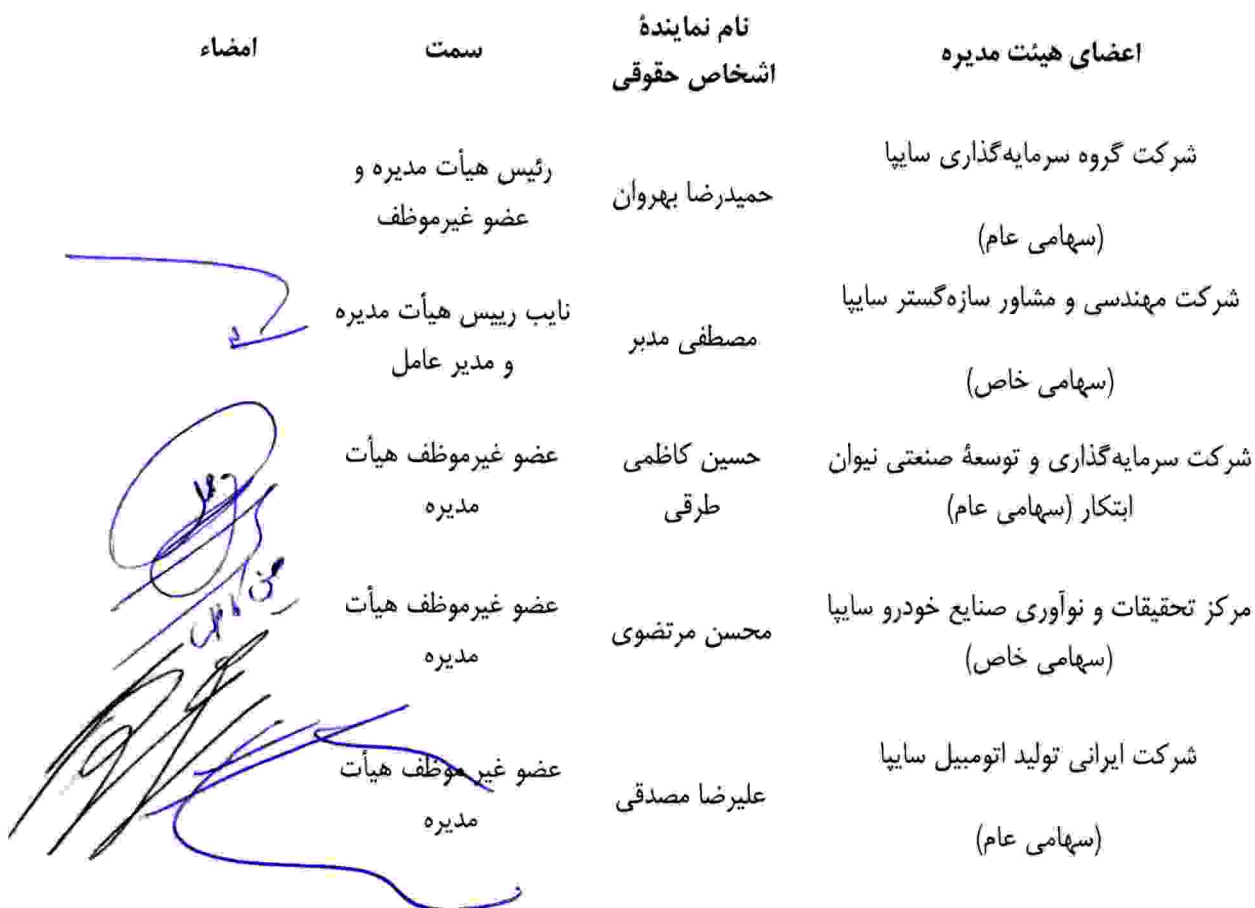 اعضای هیئت مدیره
نام نمایندۀ
اشخاص حقوقی
سمت
امضاء
شرکت گروه سرمایه‌گذاری سایپا
(سهامی عام)
حمیدرضا بهروان
رئیس هیأت مدیره و
عضو غیرموظف
شرکت مهندسی و مشاور سازه‌گستر سایپا
(سهامی خاص)
مصطفی مدبر
نایب رییس هیأت مدیره
و مدیر عامل
شرکت سرمایه‌گذاری و توسعۀ صنعتی نیوان
ابتکار (سهامی عام)
حسین کاظمی
طرقی
عضو غیرموظف هیأت
مدیره
مرکز تحقیقات و نوآوری صنایع خودرو سایپا
(سهامی خاص)
محسن مرتضوی
عضو غیرموظف هیأت
مدیره
شرکت ایرانی تولید اتومبیل سایپا
(سهامی عام)
علیرضا مصدقی
عضو غیر موظف هیأت
مدیره